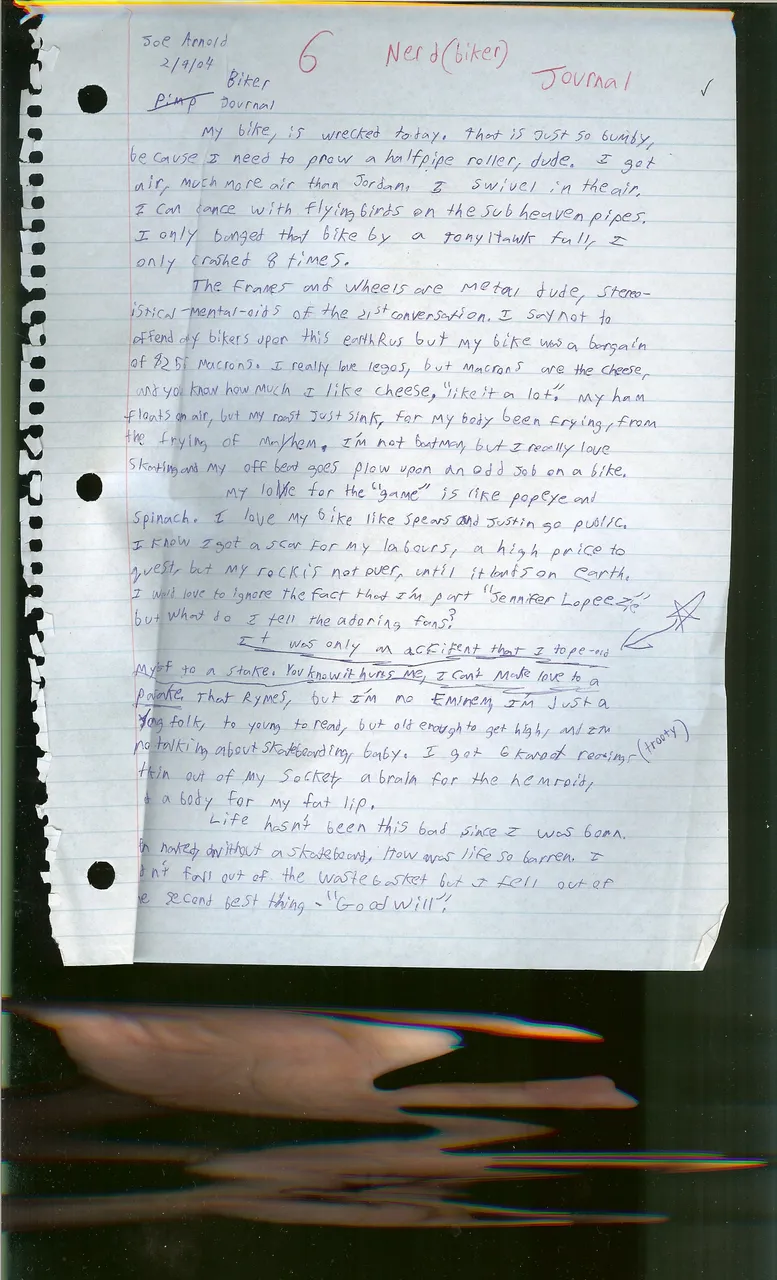 Joe Arnold
6 Nerd (biker)
Journal
2/9/04
Biker
Pimp Journal
My bike, is wrecked today. That is just so bumby,
because I need to prow a halfpipe roller, dude. I got
air, much more air than Jordan. I swivel in the air.
I can dance with flying birds on the sub heaven pipes.
I only banged that bike by a Tony Hawk full, I
only crashed 8 times.
The frames and wheels are metal dude, stereo-
istical-mental-oids of the 21st conversation. I say not to
offend my bikers upon this earth Rus but my bike was a bargain
of $25 macrons. I really love legos, but macrons are the cheese,
and you know how much I like cheese, "like it a lot". My ham
floats on air, but my roast just sink, for my body been frying, from
the frying of mayhem. I'm not batman, but I really love
skating and my off beat goes plow upon an odd job on a bike.
My love for the "game" is like popeye and
spinach. I love my bike like Spears and Justin go public.
I know I got a scar for my labours, a high price to
quest, but my rock is not over, until it lands on earth.
I would love to ignore the fact that I'm part "Jennifer Lopeez"
but what do I tell the adoring fans?
It was only an accident that I tope-oid
myself to a stake. You know it hurts me, I can't make love to a
pancake. That rymes, but I'm no Eminem, I'm just a
young folk, to young to read, but old enough to get high, and I'm
no talking about skateboarding, baby. I got 6 karoot rootings (trooty)
thin out of my socket, a brain for the hemroid,
a body for my fat lip.
Life hasn't been this bad since I was born.
naked, without a skateboard, How was life so barren. I
didn't fall out of the waste basket but I fell out of
the second best thing - "Good Will"!